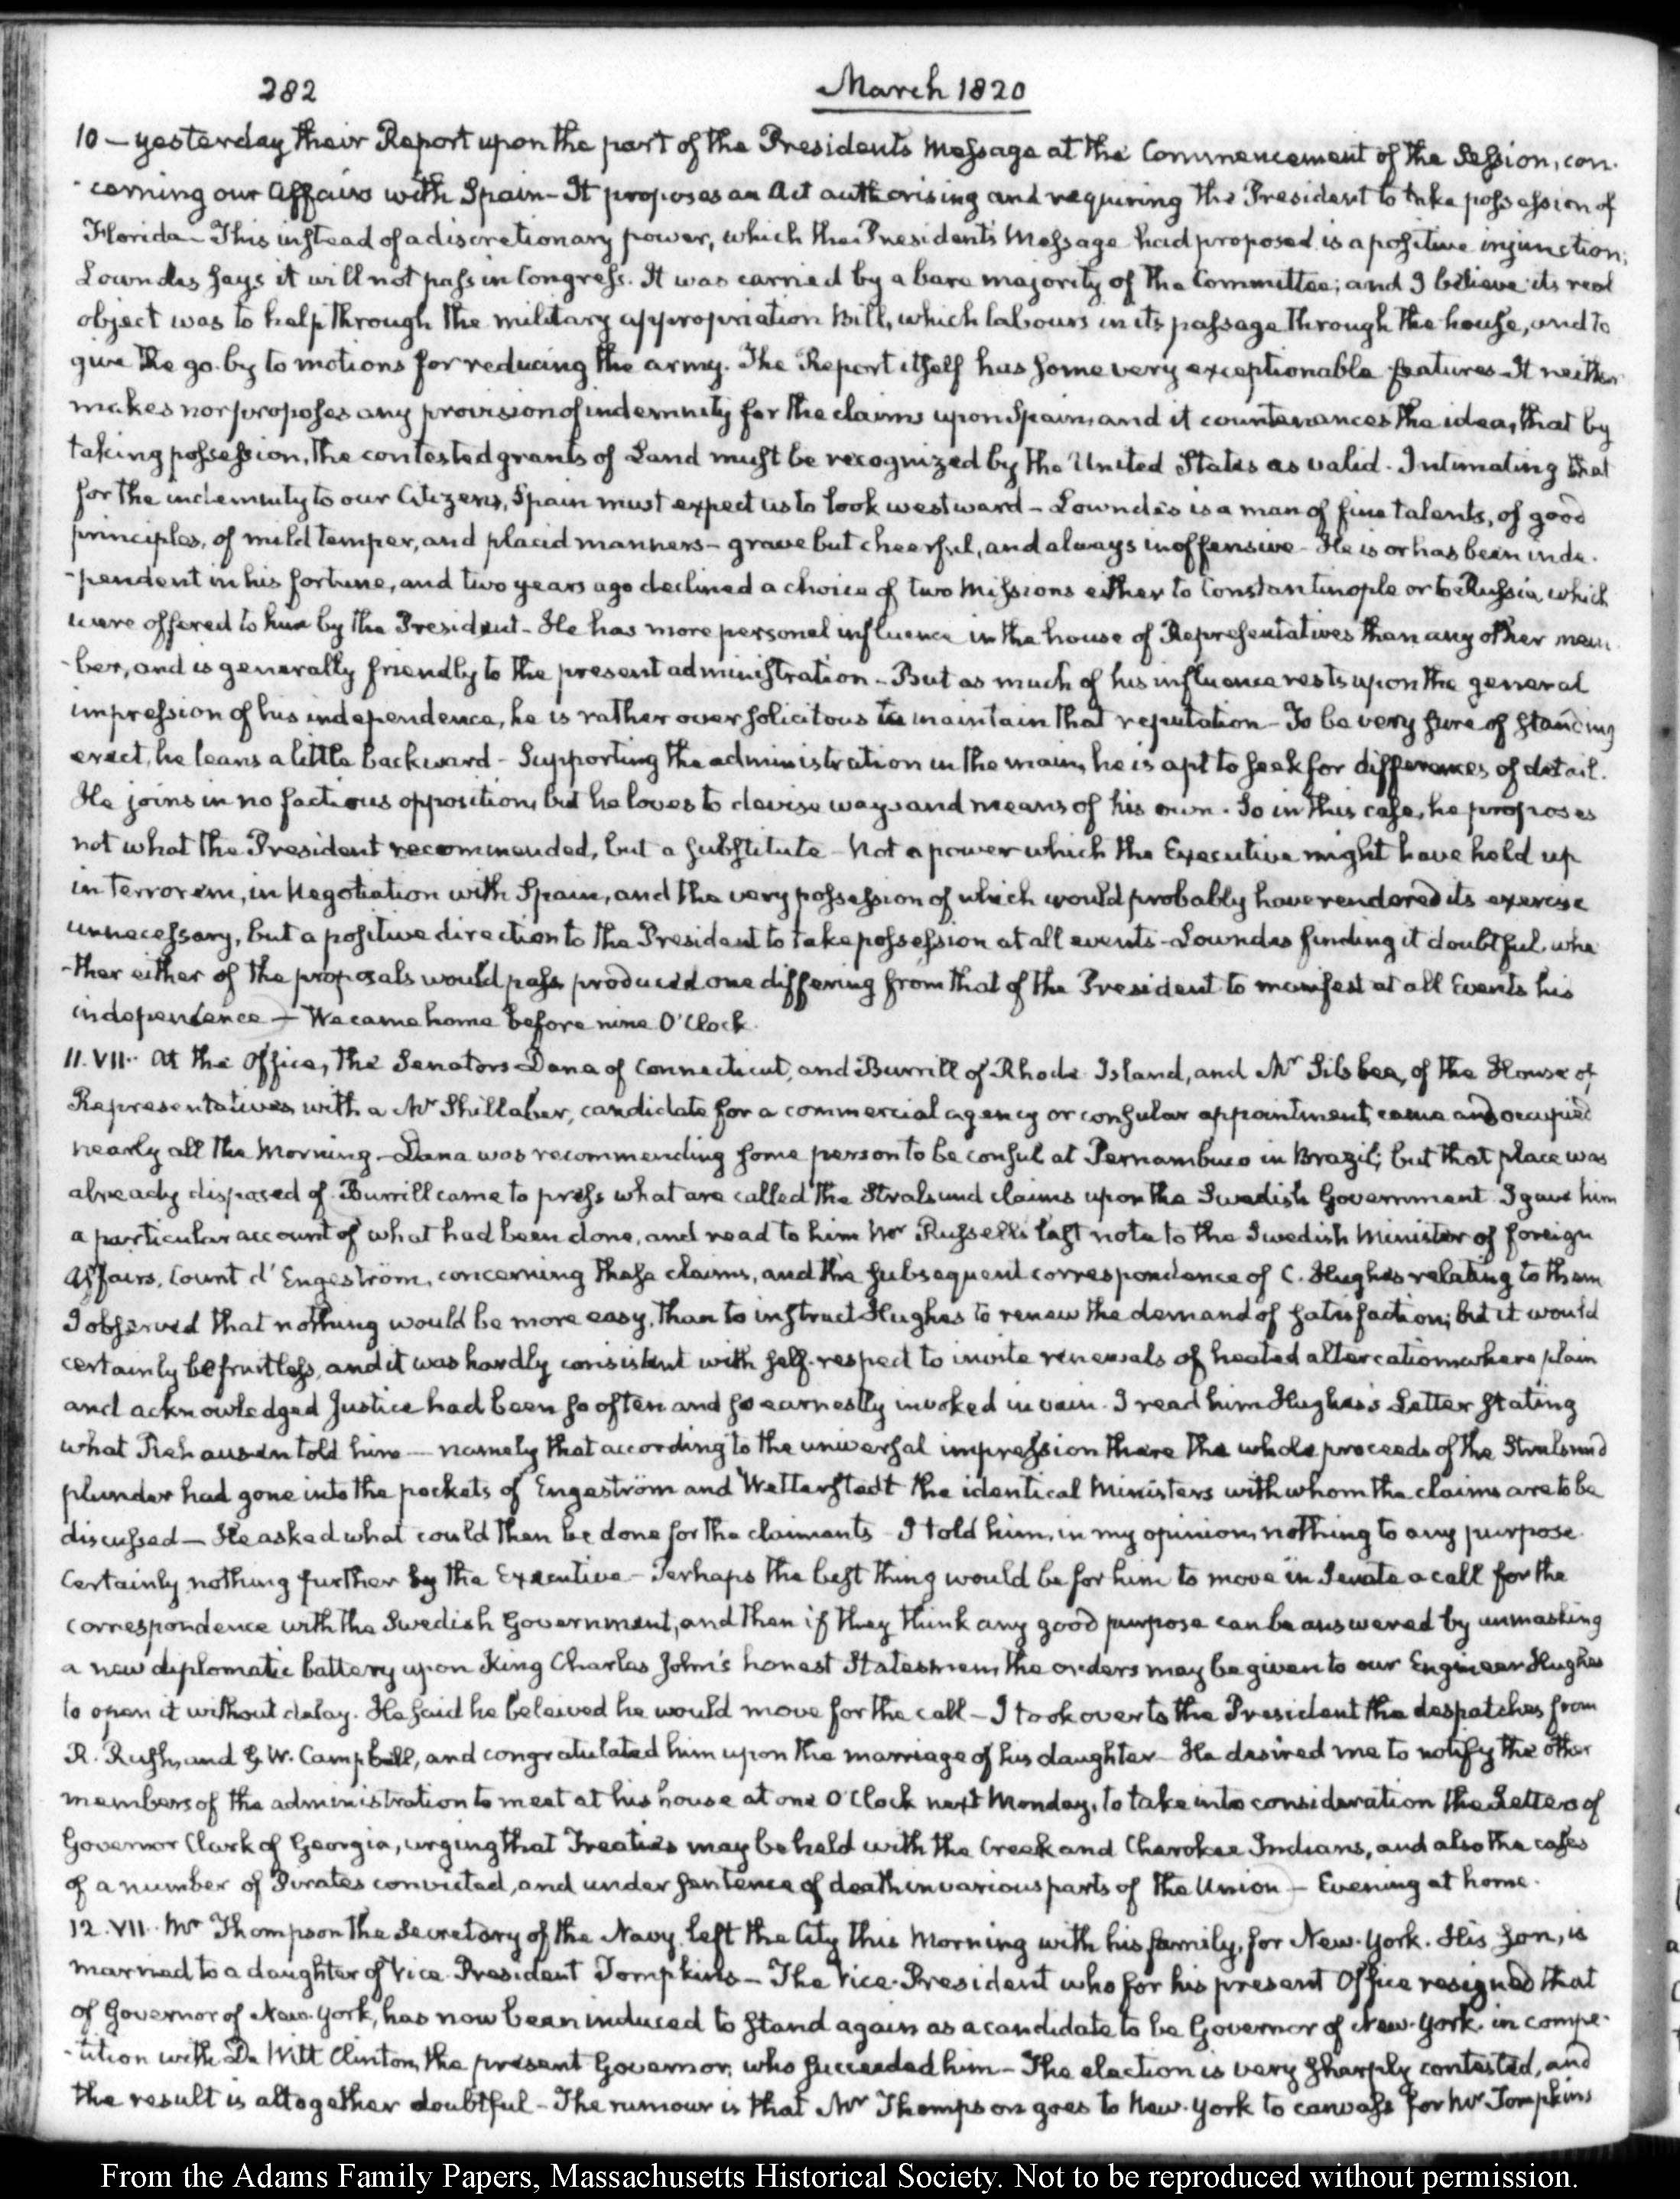 282
March 1820
10 — yesterday their Report upon the part of the Presidents Message at the Commencement of the Session, con-
-cerning our Affairs with Spain — It proposes an Act authorising and requiring the President to take possession of
Florida — This instead of a discretionary power, which the Presidents Message had proposed is a positive injunction;
Lowndes says it will not pass in Congress. It was carried by a bare majority of the Committee; and I believe its real
object was to help through the military appropriation Bill, which labours in its passage through the house, and to
give the go-by to motions for reducing the army. The Report itself has some very exceptionable features — It neither
makes nor proposes any provision of indemnity for the claims upon Spain, and it countenances the idea, that by
taking possession, the contested grants of Land must be recognized by the United States as valid. Intimating that
for the indemnity to our Citizens, Spain must expect us to look westward — Lowndes is a man of fine talents, of good
principles, of mild temper, and placid manners — grave but cheerful, and always inoffensive — He is or has been inde-
-pendent in his fortune, and two years ago declined a choice of two Missions either to Constantinople or to Russia, which
were offered to him by the President — He has more personal influence in the house of Representatives than any other mem-
-ber, and is generally friendly to the present administration — But as much of his influence rests upon the general
impression of his independence, he is rather over solicitous to maintain that reputation — To be very sure of standing
erect, he leans a little backward — Supporting the administration in the main, he is apt to seek for differences of detail.
He joins in no factious opposition, but he loves to devise ways and means of his own. So in this case, he proposes
not what the President recommended, but a substitute — Not a power which the Executive might have held up
in terrorem, in Negotiation with Spain, and the very possession of which would probably have rendered its exercise
unnecessary, but a positive direction to the President to take possession at all events — Lowndes finding it doubtful whe-
-ther either of the proposals would pass produced one differing from that of the President to manifest at all Events his
independence — We came home before nine O'Clock.
11. VII.. At the Office, the Senators Dana of Connecticut, and Burrill of Rhode Island, and Mr Silsbee, of the House of
Representatives with a Mr Shillaber, candidate for a commercial agency or consular appointment, came and occupied
nearly all the Morning — Dana was recommending some person to be consul at Pernambuco in Brazil; but that place was
already disposed of. Burrill came to press what are called the Stralsund claims upon the Swedish Government. I gave him
a particular account of what had been done, and read to him Mr Russell's last note to the Swedish Minister of foreign
Affairs, Count d'Engeström, concerning these claims, and the subsequent correspondence of C. Hughes relating to them
I observed that nothing would be more easy, than to instruct Hughes to renew the demand of satisfaction; but it would
certainly be fruitless, and it was hardly consistent with self-respect to invite renewals of heated altercation where plain
and acknowledged Justice had been so often and so earnestly invoked in vain. I read him Hughes's Letter stating
what Rehausen told him — namely that according to the universal impression there the whole proceeds of the Stralsund
plunder had gone into the pockets of Engeström and Wetterstedt the identical Ministers with whom the claims are to be
discussed — He asked what could then be done for the claimants — I told him, in my opinion, nothing to any purpose.
Certainly nothing further by the Executive — Perhaps the best thing would be for him to move in Senate a call for the
correspondence with the Swedish Government, and then if they think any good purpose can be answered by unmasking
a new diplomatic battery upon King Charles John's honest Statesmen, the orders may be given to our Engineer Hughes
to open it without delay. He said he beleived he would move for the call — I took over to the President the despatches from
R. Rush, and G. W. Campbell, and congratulated him upon the marriage of his daughter — He desired me to notify the other
members of the administration to meet at his house at one O'Clock next Monday, to take into consideration the Letters of
Governor Clark of Georgia, urging that Treaties may be held with the Creek and Cherokee Indians, and also the cases
of a number of Pirates convicted, and under sentence of death in various parts of the Union — Evening at home.
12. VII. Mr Thompson the Secretary of the Navy left the City this Morning with his family, for New-York. His Son, is
married to a daughter of Vice-President Tompkins — The Vice-President who for his present Office resigned that
of Governor of New-York, has now been induced to stand again as a candidate to be Governor of New-York, in compe-
-tition with De Witt Clinton, the present Governor, who succeeded him — The election is very sharply contested, and
the result is altogether doubtful — The rumour is that Mr Thompson goes to New-York to canvass for Mr Tompkins
From the Adams Family Papers, Massachusetts Historical Society. Not to be reproduced without permission.